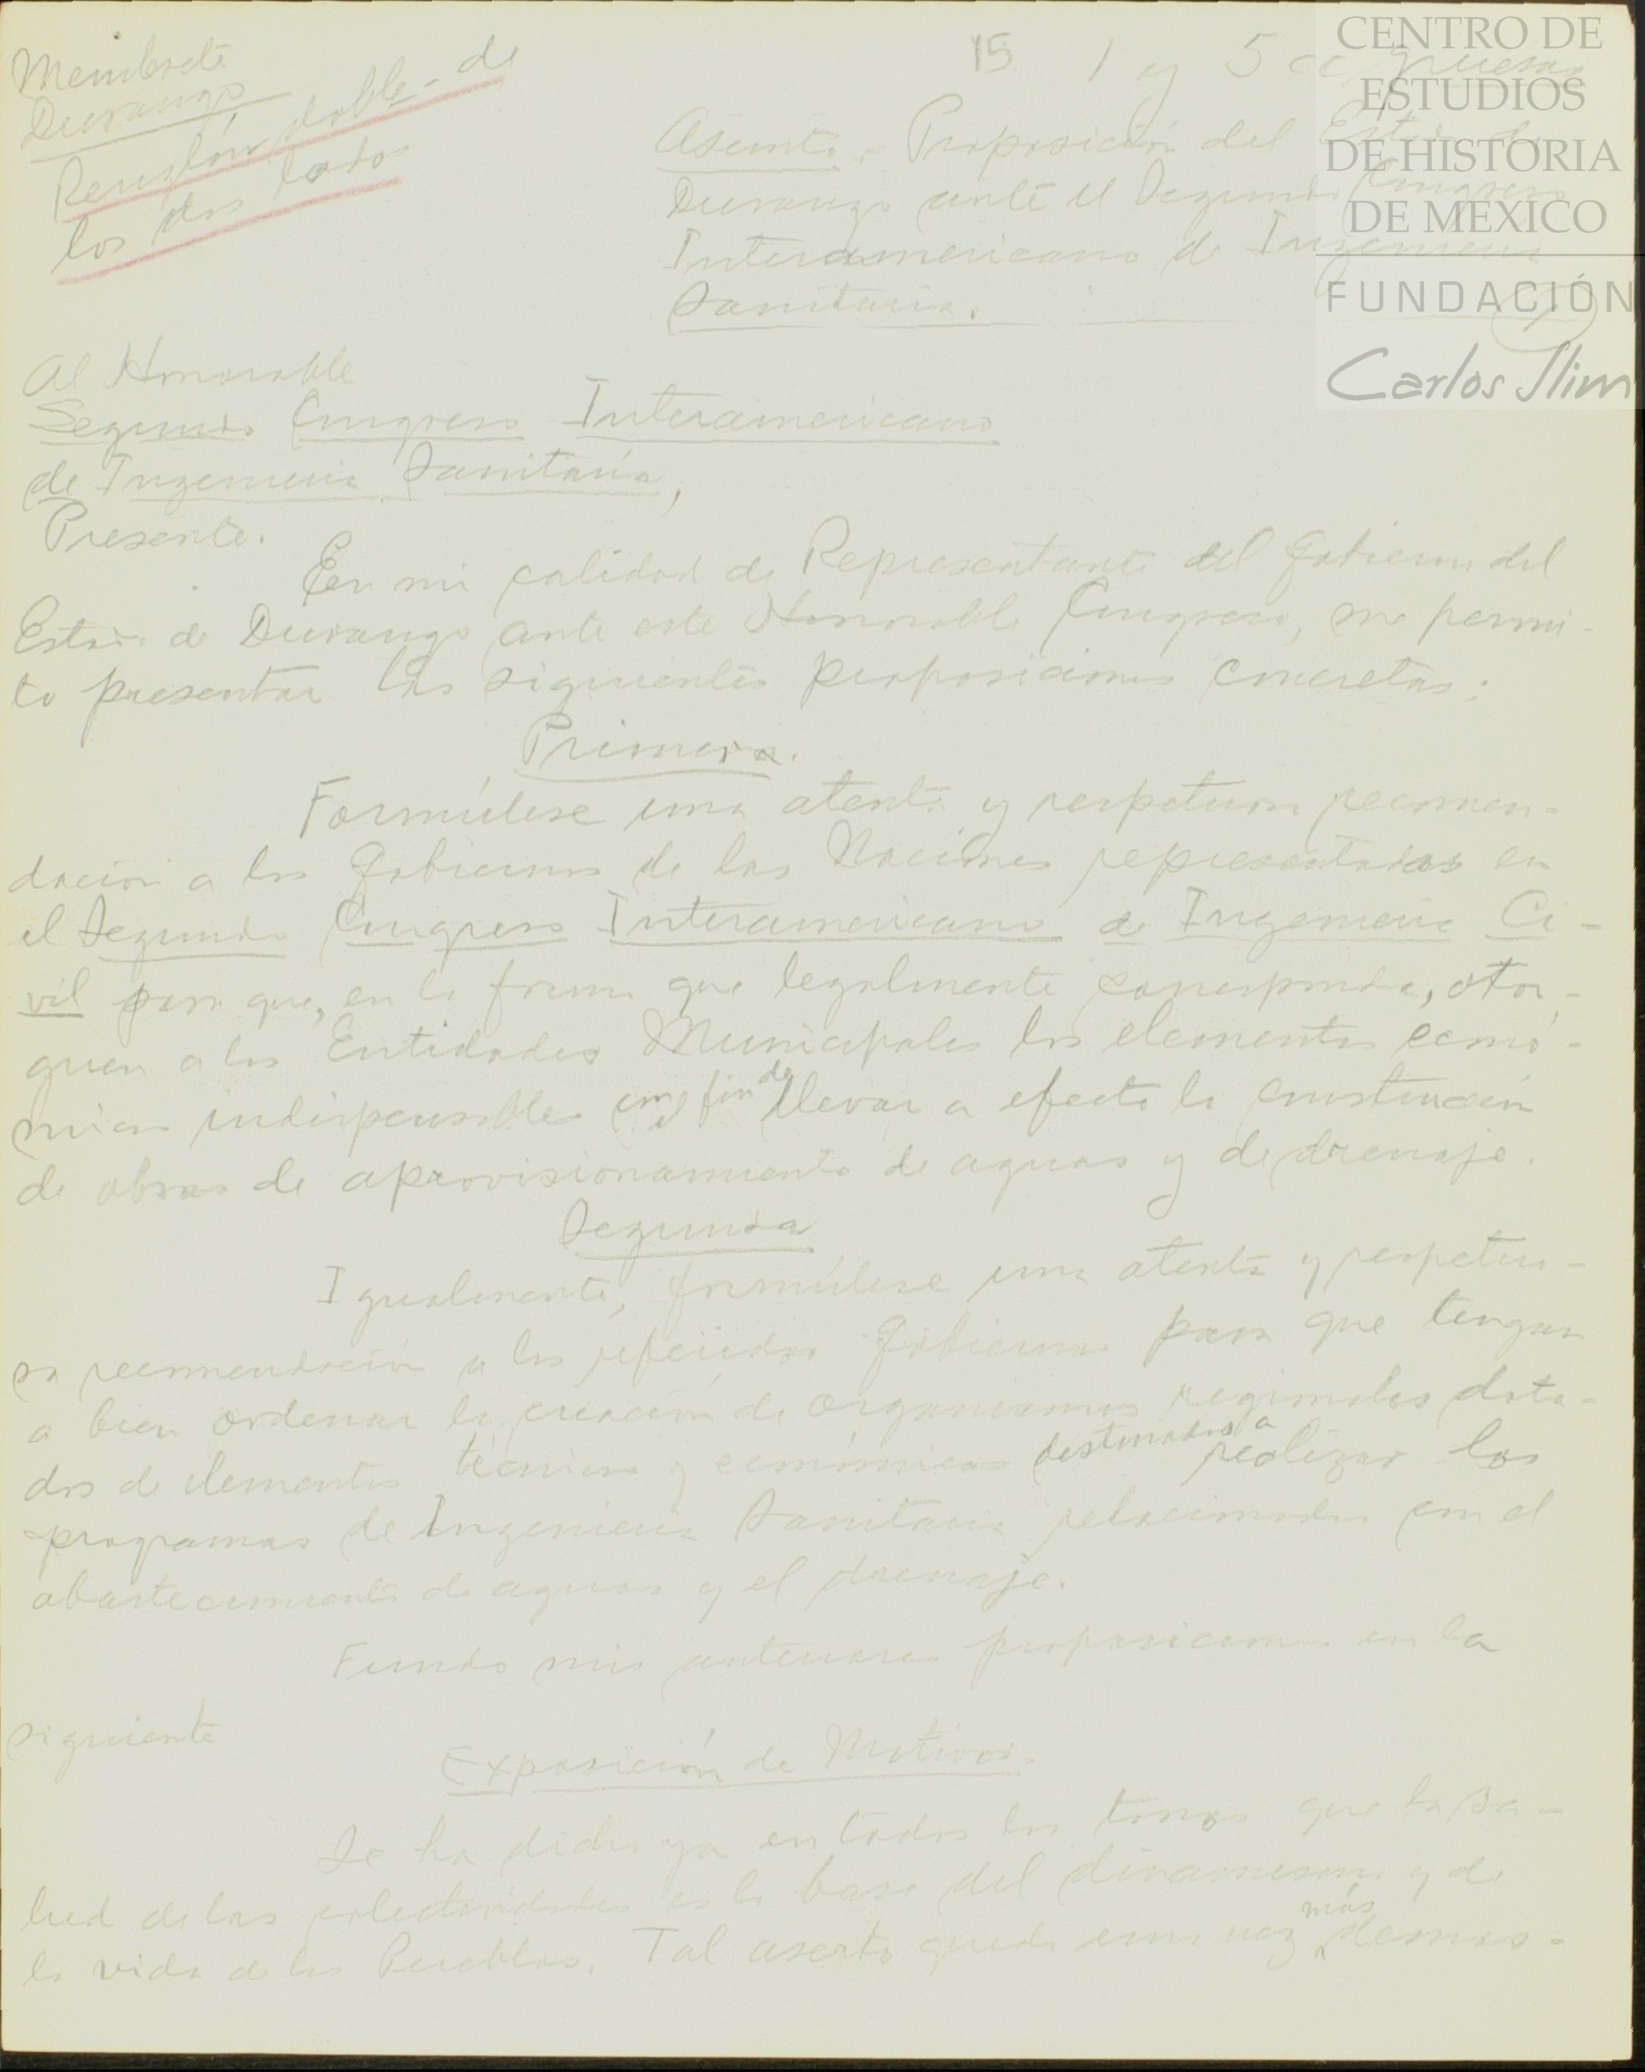 Membrete
Durango
Renglón doble - de
los dos lados
15 1 y 5 cc gruesas
Asunto.- Proposición del Estado de
Durango ante el Segundo Congreso
Interamericano de Ingeniería
Sanitaria.
1
CENTRO DE
ESTUDIOS
DE HISTORIA
DE MÉXICO
FUNDACIÓN
Carlos Slim
Al Honorable
Segundo Congreso Interamericano
de Ingeniería Sanitaria,
Presente.
En mi calidad de Representante del Gobierno del
Estado de Durango ante este Honorable Congreso, me permi-
to presentar las siguientes proposiciones concretas:
Primera.
Formúlese una atenta y respetuosa recomen-
dación a los Gobiernos de las Naciones representadas en
el Segundo Congreso Interamericano de Ingeniería Ci-
vil para que, en la forma que legalmente corresponda, otor-
guen a las Entidades Municipales los elementos econó-
micos indispensables con el fin de llevar a efecto la construcción
de obras de aprovisionamiento de aguas y de drenaje.
Segunda
Igualmente, formúlese una atenta y respetuo-
sa recomendación a los referidos Gobiernos para que tengan
a bien ordenar la creación de organismos regionales dota-
dos de elementos técnicos y económicos destinados a realizar los
programas de Ingeniería Sanitaria relacionados con el
abastecimiento de aguas y el drenaje.
Fundo mis anteriores proposiciones en la
siguiente
Exposición de Motivos.
Se ha dicho ya en todos los tonos que la sa-
lud de las colectividades es la base del dinamismo y de
la vida de los Pueblos. Tal aserto queda una vez más demos-